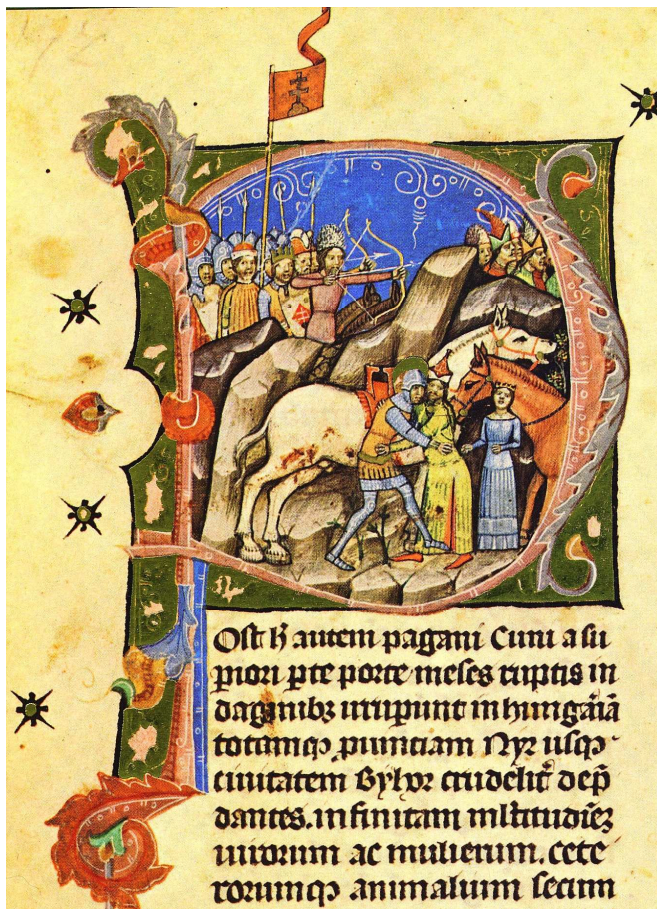 POst h̄ autem pagani Cuni a su
piori ꝑte porte meses ruptis in
daginibꝫ irruꝑunt in hungaīa
totamqꝫ ꝓuinciam Nyr usqꝫ
ciuitatem Byhor crudelit̄ dep̄
dantes. infinitam ml̄titudīeꝫ
uirorum ac mulierum. cete
rorumqꝫ animalium secum